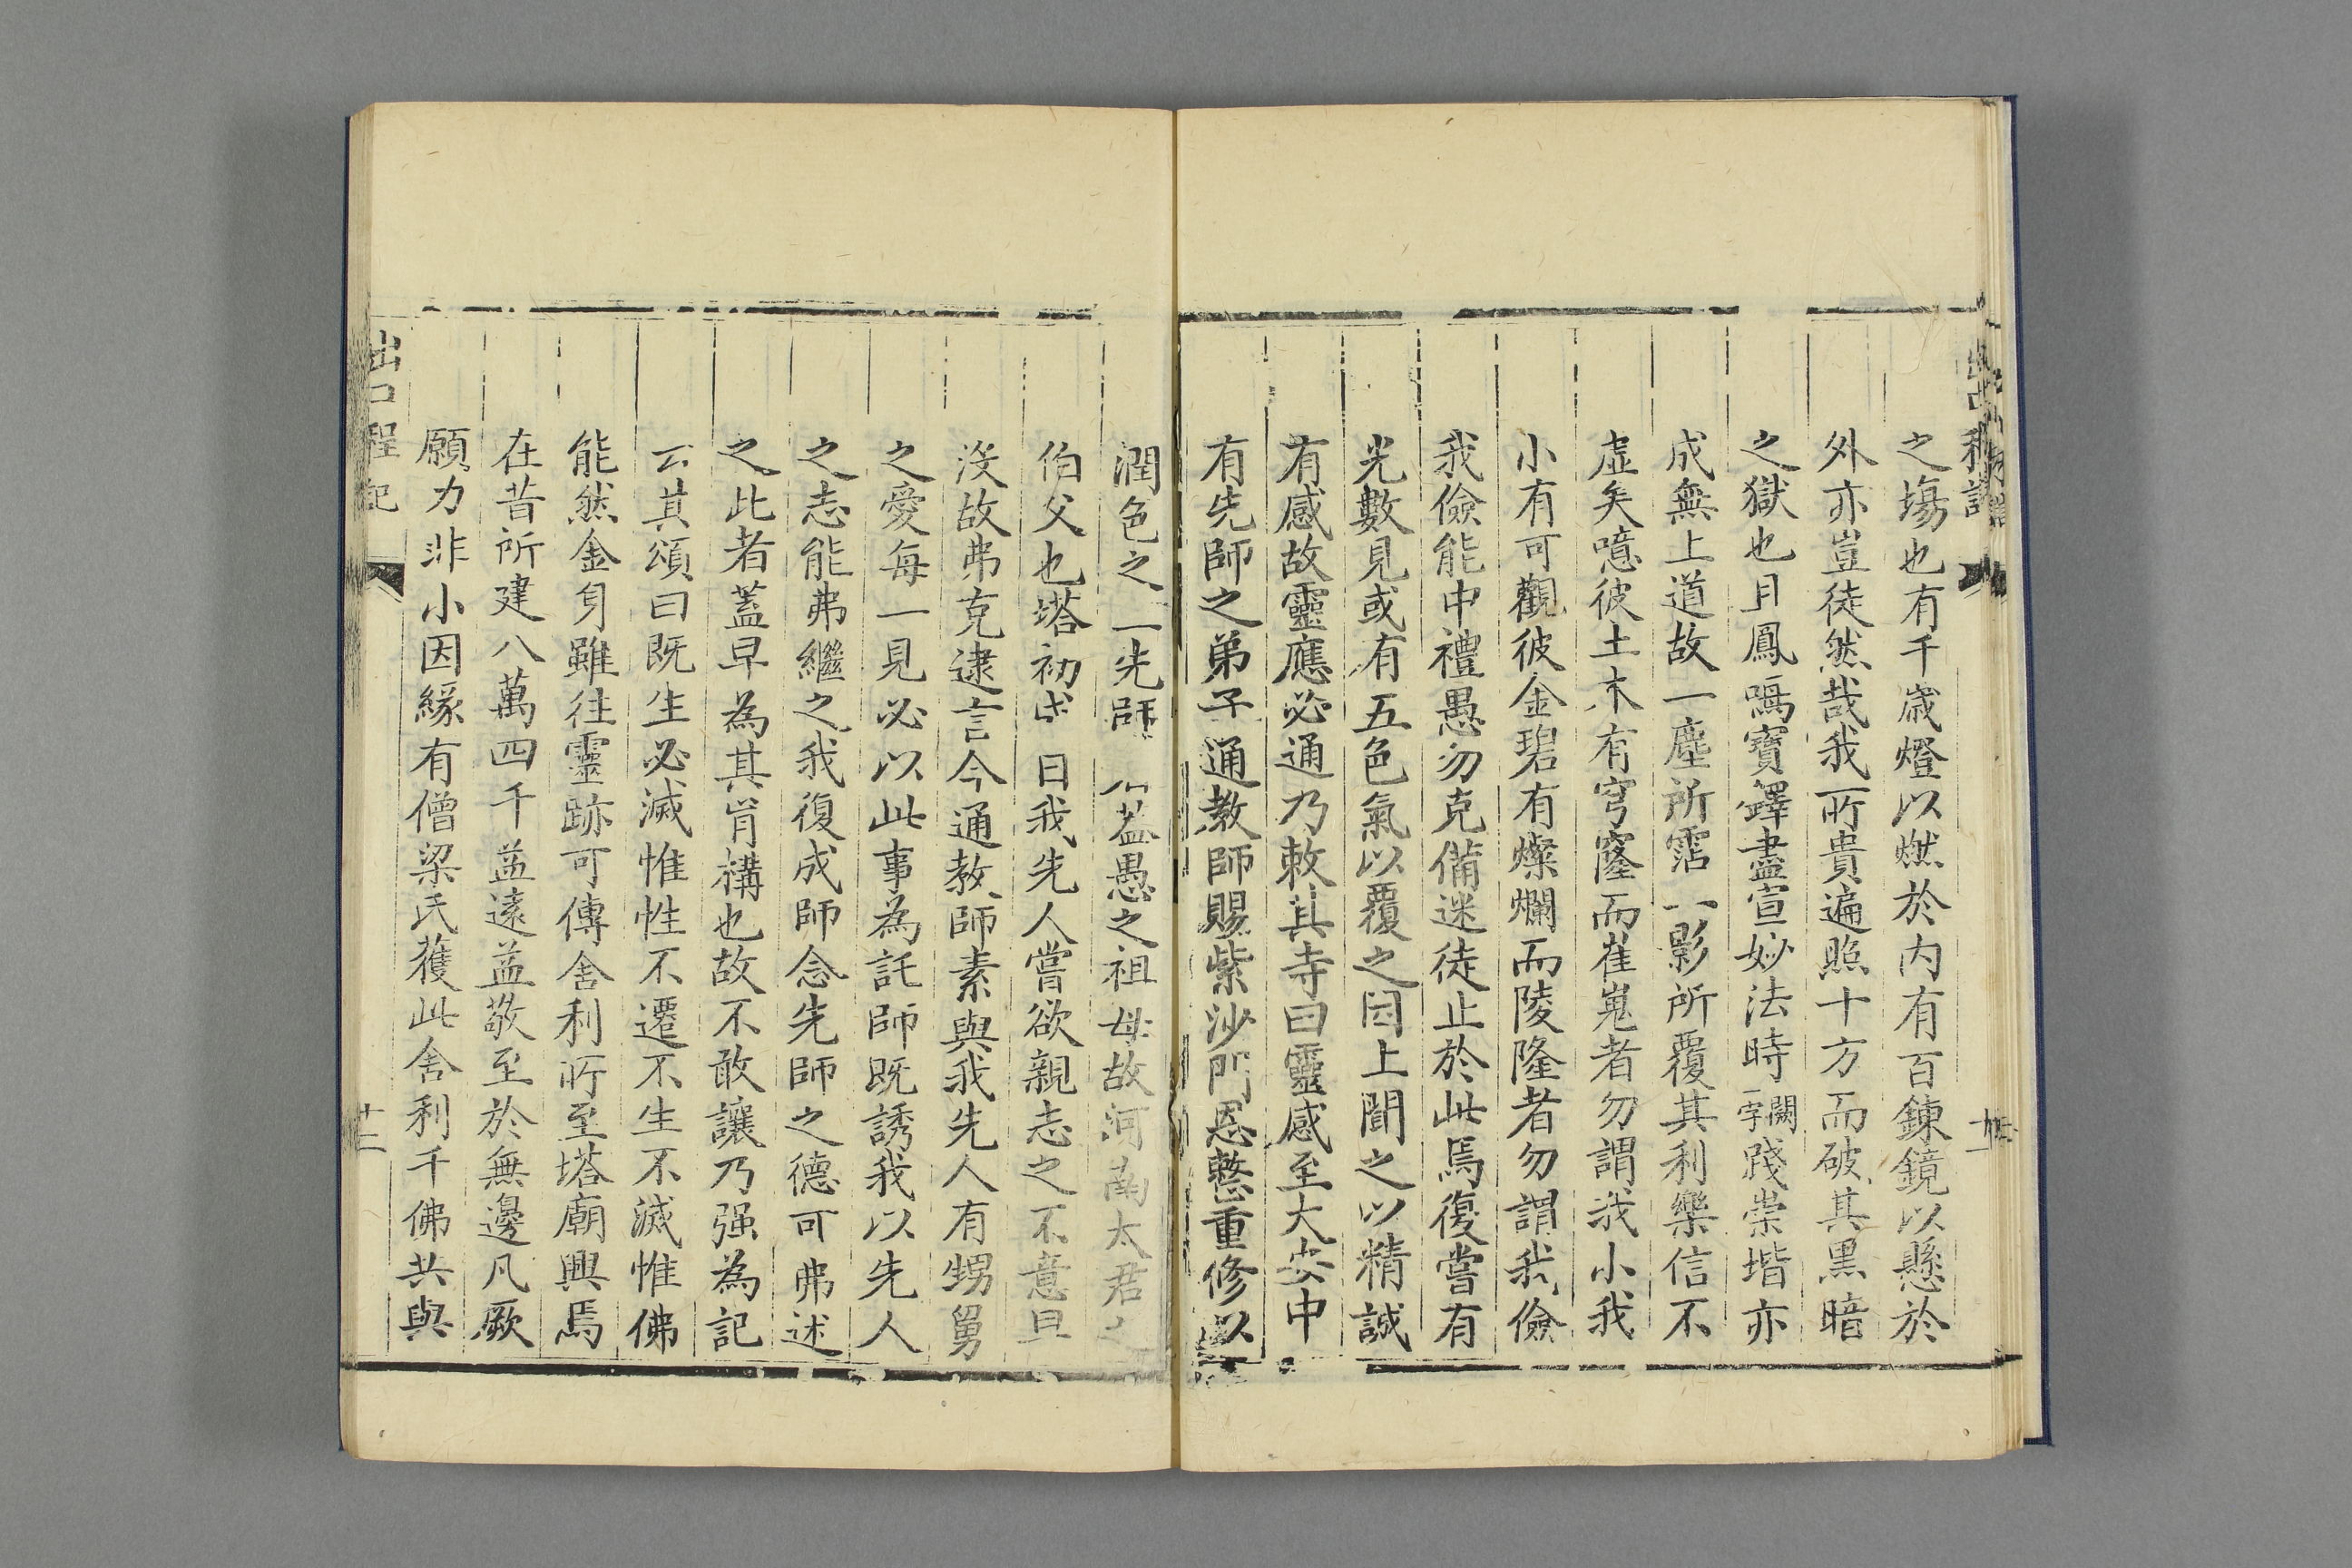 之塲也有千歳燈以燃於内有百鍊鏡以懸於
外亦豈徒然哉我所貴遍照十方而破其黒暗
之獄也月鳳嗚寶鐸盡宣妙法時一字闕踐崇堦亦
成無上道故一塵所霑一影所覆其利樂信不
虛矣噫彼土木有穹窿而崔嵬者勿謂我小我
小有可觀彼金碧有燦爛而陵隆者勿謂我儉
我儉能中禮愚勿克備迷徒止於此焉復嘗有
光數見或有五色氣以覆之因上聞之以精誠
有感故靈應必通乃敕其寺曰靈感至大安中
有先師之弟子通教師賜紫沙門恩慗重修以
潤色之一先師 蓋愚之祖母故河南太君之
伯父也塔初 日我先人嘗欲親志之不意旦
沒故弗克逮言今通教師素與我先人有甥舅
之愛每一見必以此事為託師既誘我以先人
之志能弗繼之我復成師念先師之德可弗述
之此者蓋早為其肯構也故不敢讓乃强為記
云其頌曰既生必滅惟性不遷不生不滅惟佛
能然金身雖往靈跡可傳舍利所至塔廟興焉
在昔所建八萬四千益遠益敬至於無邊凡厥
願力非小因緣有僧梁氏獲此舍利千佛共與
出口程記
十二